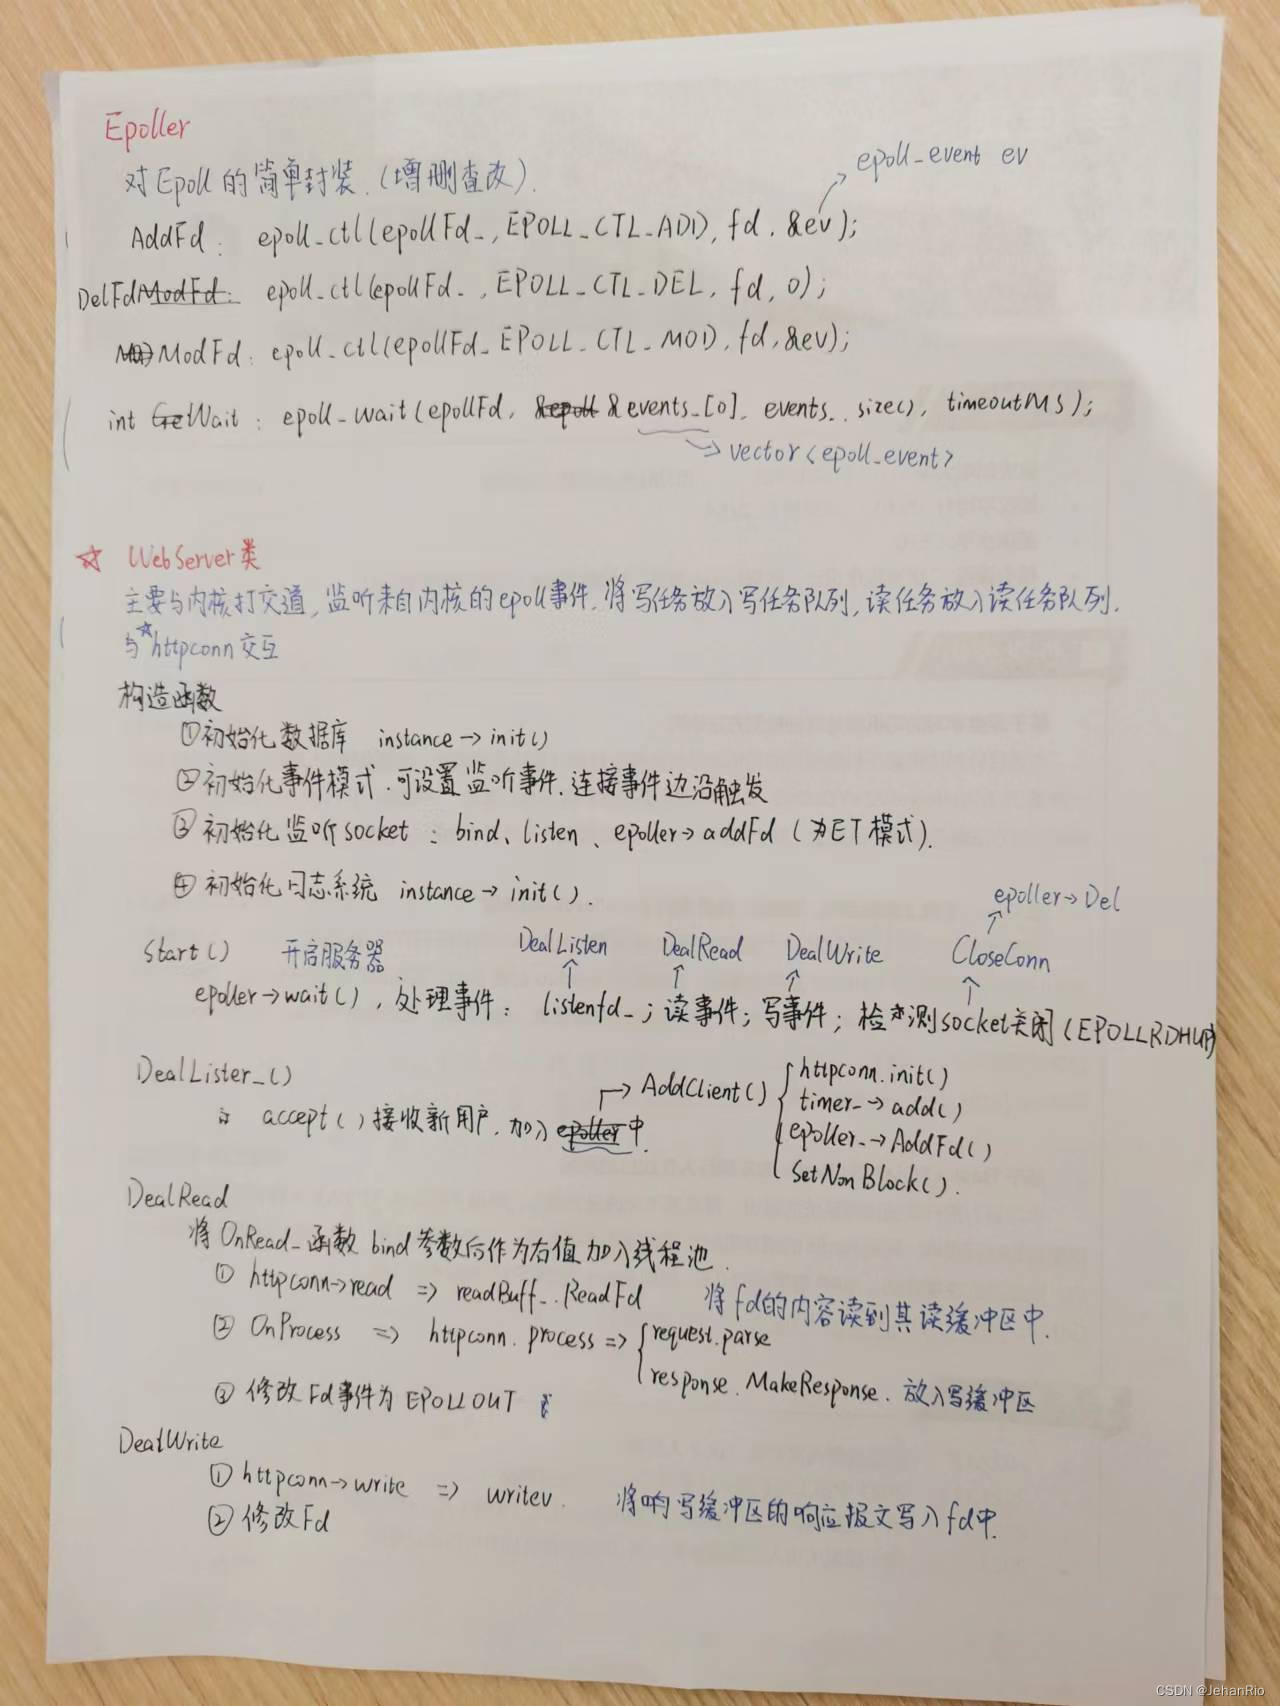 Epoller
对Epoll的简单封装.(增删查改).
epoll_event ev
AddFd: epoll_ctl(epollFd_, EPOLL_CTL_ADD, fd, &ev);
DelFd ModFd: epoll_ctl(epollFd_, EPOLL_CTL_DEL, fd, 0);
ModFd: epoll_ctl(epollFd_ EPOLL_CTL_MOD, fd, &ev);
int GeWait: epoll_wait(epollFd, &epoll &events_[0], events_.size(), timeoutMS);
vector<epoll_event>
☆ WebServer类
主要与内核打交道,监听来自内核的epoll事件.将写任务放入写任务队列,读任务放入读任务队列.
与☆httpconn交互
构造函数
①初始化数据库 instance→init()
②初始化事件模式.可设置监听事件.连接事件边沿触发
③初始化监听socket: bind、listen、epoller→addFd (为ET模式).
④初始化日志系统 instance→init().
epoller→Del
Start() 开启服务器 DealListen DealRead DealWrite CloseConn
epoller→wait(),处理事件: listenfd_;读事件;写事件;检测socket关闭(EPOLLRDHUP)
DealLister_()
accept()接收新用户.加入epoller中.
AddClient()
httpconn.init()
timer_→add()
epoller_→AddFd()
SetNonBlock().
DealRead
将OnRead_函数bind参数后作为右值加入线程池.
① httpconn→read => readBuff_.ReadFd 将fd的内容读到其读缓冲区中.
② OnProcess => httpconn.process => request.parse
response.MakeResponse. 放入写缓冲区
③ 修改Fd事件为EPOLLOUT
DealWrite
① httpconn→write => writev. 将响写缓冲区的响应报文写入fd中.
② 修改Fd
CSDN @JehanRio